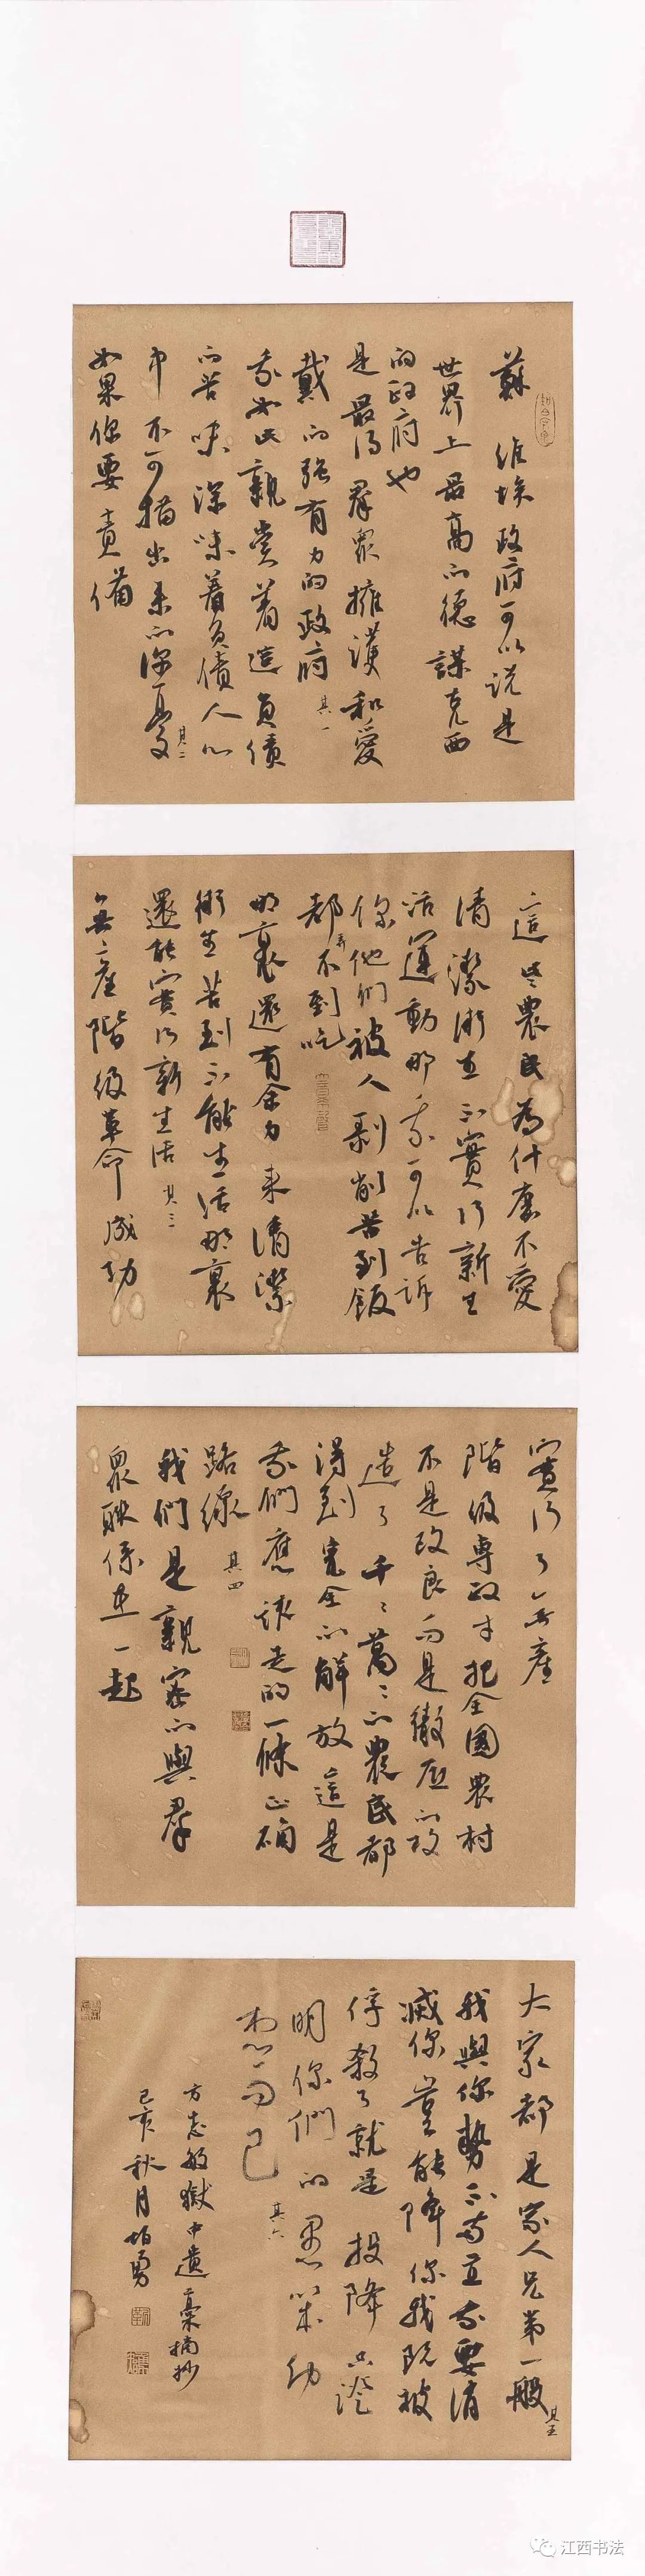 蘇維埃政府可以説是
世界上最高的德謨克西
的政府也
是最得羣眾擁護和愛
戴的強有力的政府 其一
我如此親嘗着這負債
的苦味深味着負債人心
中不可描出來的深憂 其二
如果你要責備
這些農民為什麼不愛
清潔衛生不實行新生
活運動那我可以告訴
你他們被人剥削苦到飯
都弄不到吃
那裏還有余力來清潔
衛生苦到不能生活那裏
還能實行新生活 其三
無產階級革命成功
實行了無產
階級專政才把全國農村
不是改良而是徹底的改
造了千千萬萬的農民都
得到完全的解放這是
我們應該走的一條正确
路線 其四
我們是親密的與羣
眾联係在一起
大家都是家人兄弟一般 其五
我與你勢不両立我要消
滅你豈能降你我既被
俘殺了就是投降只證
明你們的愚笨幼
稚而已 其六
方志敏獄中遺稾摘抄
己亥秋月
江西书法